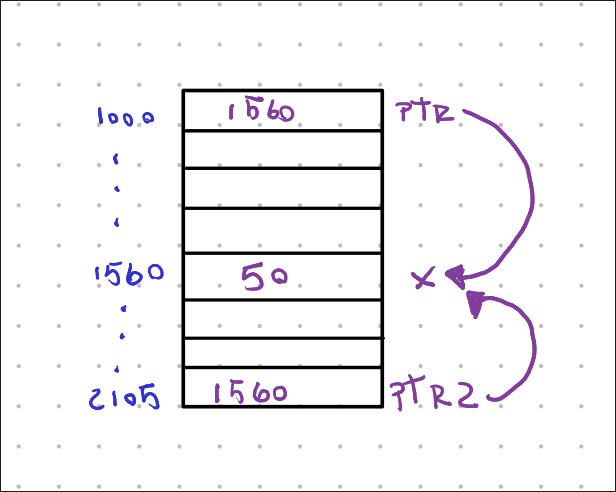 1000 1560 PTR
1560 50 X
2105 1560 PTR2